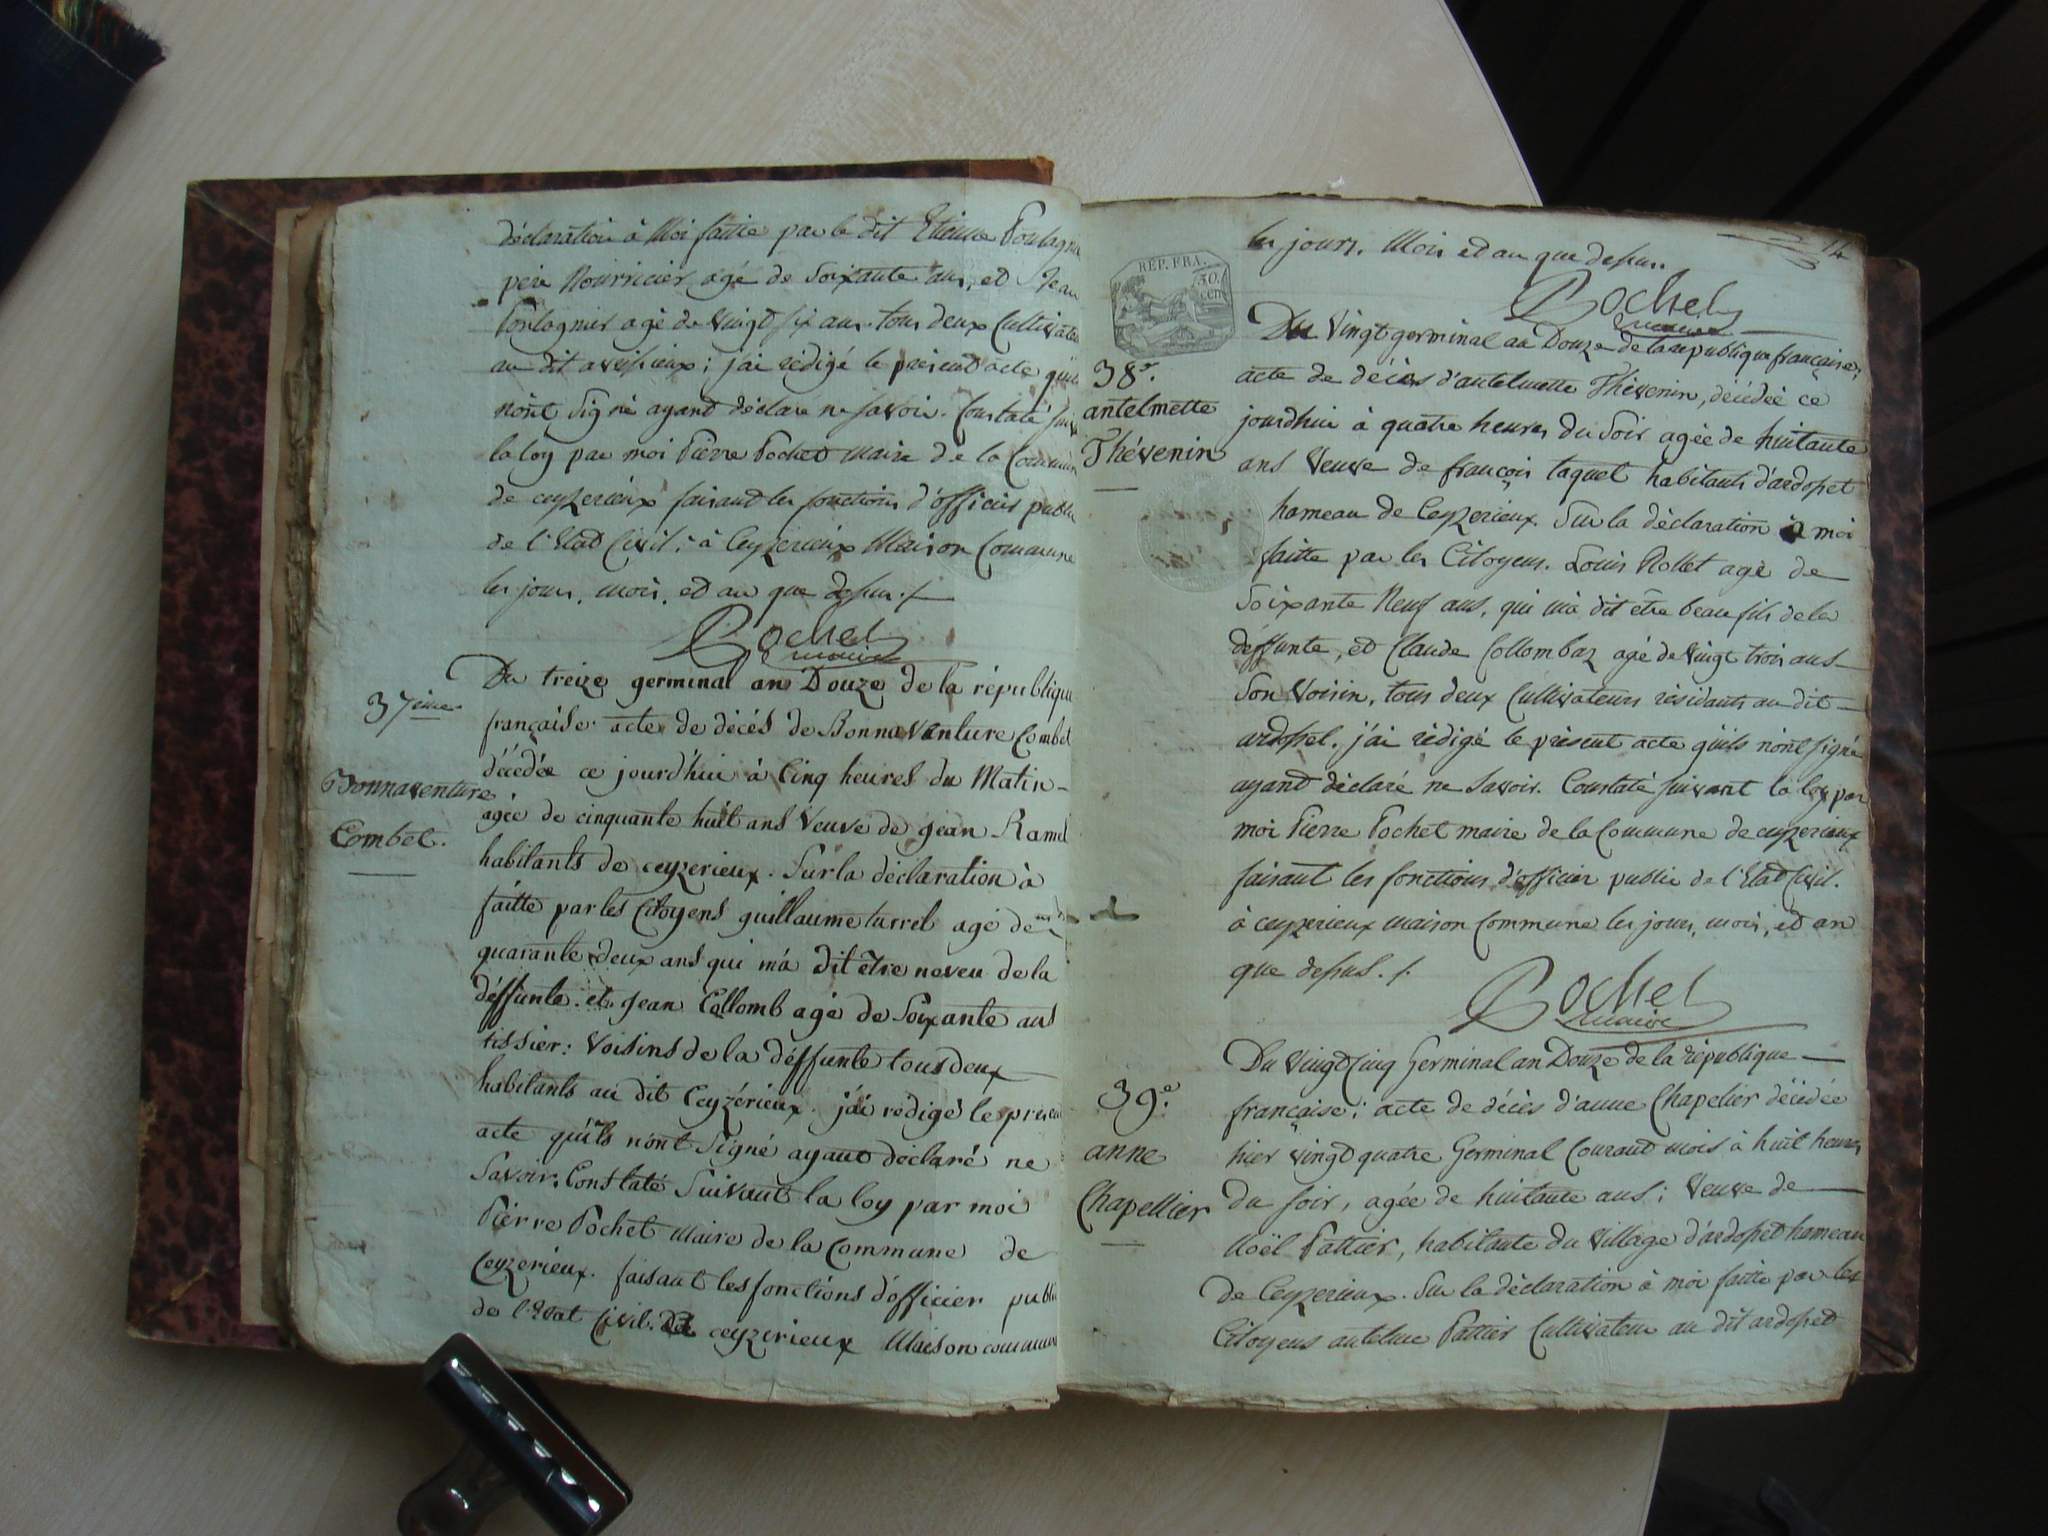 déclaration à Moi faitte par le dit Etienne Poulagnier
père Nourricier agé de Soixante ans, et Jean
Poulagnier agé de vingt six ans. tous deux Cultivateurs
au dit aveisieux; j'ai rédigé le présent acte quils
n'ont Signé ayant déclaré ne savoir. Constaté suivant
la loy par moi Pierre Pochet Maire de la Commune
de ceyzerieux faisant les fonctions d'officier public
de l'Etat Civil; à Ceyzerieux Maison Commune
les jour, mois, et an que dessus ./.
Pochet
maire
37ème
Bonnaventure
Combet.
Du treize germinal an Douze de la république
française. acte de décés de Bonnaventure Combet
décédée ce jourd'hui à Cinq heures du Matin
agée de cinquante huit ans Veuve de Jean Ramel
habitants de ceyzerieux. Sur la déclaration à
faitte par les Citoyens guillaume turrel agé de
quarante deux ans qui m'a dit être neveu de la
déffunte. et Jean Collomb agé de Soixante ans
tissier: Voisins de la déffunte tous deux
habitants au dit Ceyzérieux. j'ai rédigé le présent
acte qu'ils n'ont Signé ayant déclaré ne
Savoir. Constaté Suivant la loy par moi
Pierre Pochet Maire de la Commune de
Ceyzerieux. faisant les fonctions d'officier public
de l'Etat Civil. à ceyzerieux Maison commune
14
les jours. Mois et an que dessus.
Pochet
maire
REP. FRA.
50.
cent
38e.
antelmette
Thévenin
Du Vingt germinal an Douze de la republique française;
acte de décès d'antelmette Thévenin, décédée ce
jourd'hui à quatre heures du Soir agée de huitante
ans Veuve de françois taquet habitants d'ardosset
hameau de Ceyzerieux. Sur la déclaration à moi
faitte par les Citoyens. Louis Rollet agé de
Soixante Neuf ans, qui m'a dit être beau fils de la
déffunte, et Claude Collombaz agé de vingt trois ans
Son Voisin, tous deux Cultivateurs résidants au dit
ardosset. j'ai rédigé le présent acte quils n'ont signé
ayant déclaré ne Savoir. Constaté suivant la loy par
moi Pierre Pochet maire de la Commune de ceyzerieux
faisant les fonctions d'officier public de l'Etat Civil.
à ceyzerieux maison Commune les jour, mois, et an
que dessus. /.
Pochet
maire
39e.
anne
Chapellier
Du Vingt Cinq Germinal an Douze de la république
française; acte de décès d'anne Chapelier décédée
hier vingt quatre Germinal Courant mois à huit heures
du soir, agée de huitante ans; Veuve de
Noël Pattier, habitante du Village d'ardosset hameau
de Ceyzerieux. Sur la déclaration à moi faitte par les
Citoyens antelme Pattier Cultivateur au dit ardosset